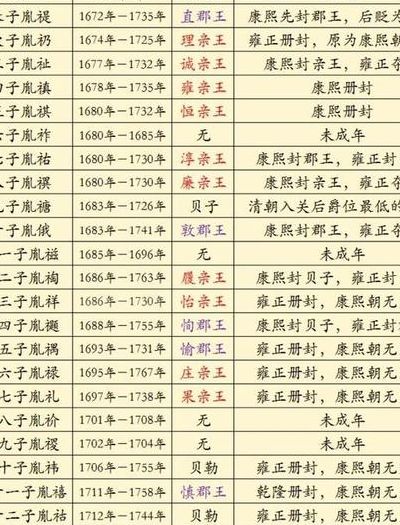 子胤禔 1672年－1735年 直郡王 康熙先封郡王，后贬为
子胤礽 1674年－1725年 理亲王 雍正册封，原为康熙朝
子胤祉 1677年－1732年 诚亲王 康熙封亲王，雍正夺
子胤禛 1678年－1735年 雍亲王 康熙册封
子胤祺 1680年－1732年 恒亲王 康熙册封
子胤祚 1680年－1685年 无 未成年
子胤祐 1680年－1730年 淳亲王 康熙封郡王，雍正封
子胤禩 1680年－1730年 廉亲王 康熙封亲王，雍正夺
子胤禟 1683年－1726年 贝子 清朝入关后爵位最低的
子胤俄 1683年－1741年 敦郡王 康熙封郡王，雍正夺
一子胤禌 1685年－1696年 无 未成年
二子胤裪 1686年－1763年 履亲王 康熙封贝子，雍正封
三子胤祥 1686年－1730年 怡亲王 雍正册封，康熙朝无
四子胤禵 1688年－1755年 恂郡王 康熙封贝子，雍正封
五子胤禑 1693年－1731年 愉郡王 雍正册封，康熙朝无
六子胤禄 1695年－1767年 庄亲王 雍正册封，康熙朝无
七子胤礼 1697年－1738年 果亲王 雍正册封，康熙朝无
八子胤祄 1701年－1708年 无 未成年
九子胤禝 1702年－1704年 无 未成年
十子胤祎 1706年－1755年 贝勒 雍正册封，康熙朝无
十一子胤禧 1711年－1758年 慎郡王 乾隆册封，康熙朝无
十二子胤祜 1712年－1744年 贝勒 雍正册封，康熙朝无